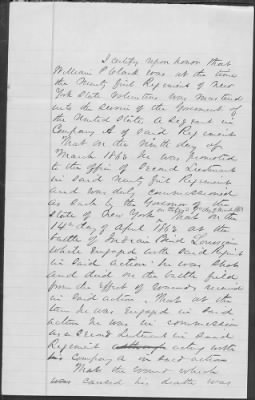 I certify upon honor that
William P Clark was at the time
the Ninety first Regiment of New
York State Volunteers was mustered
into the service of the Government of
the United States, a Sergeant in
Company A of said Regiment
That on the Ninth day of
March 1863 he was promoted
to the office of Second Lieutenant
in said Ninety first Regiment
and was duly commissioned
as such by the Governor of the
State of New York
That on the
14th day of April 1863 at the
battle of Bend Louisiana
while engaged with said Regiment
in said action he was shot
and died on the battle field
from the effect of wounds received
in said action. That at the
time he was engaged in said
action he was in commission
as a Second Lieutenant in said
Regiment although acting with
his Company A in said action
That the wound which
was caused his death was